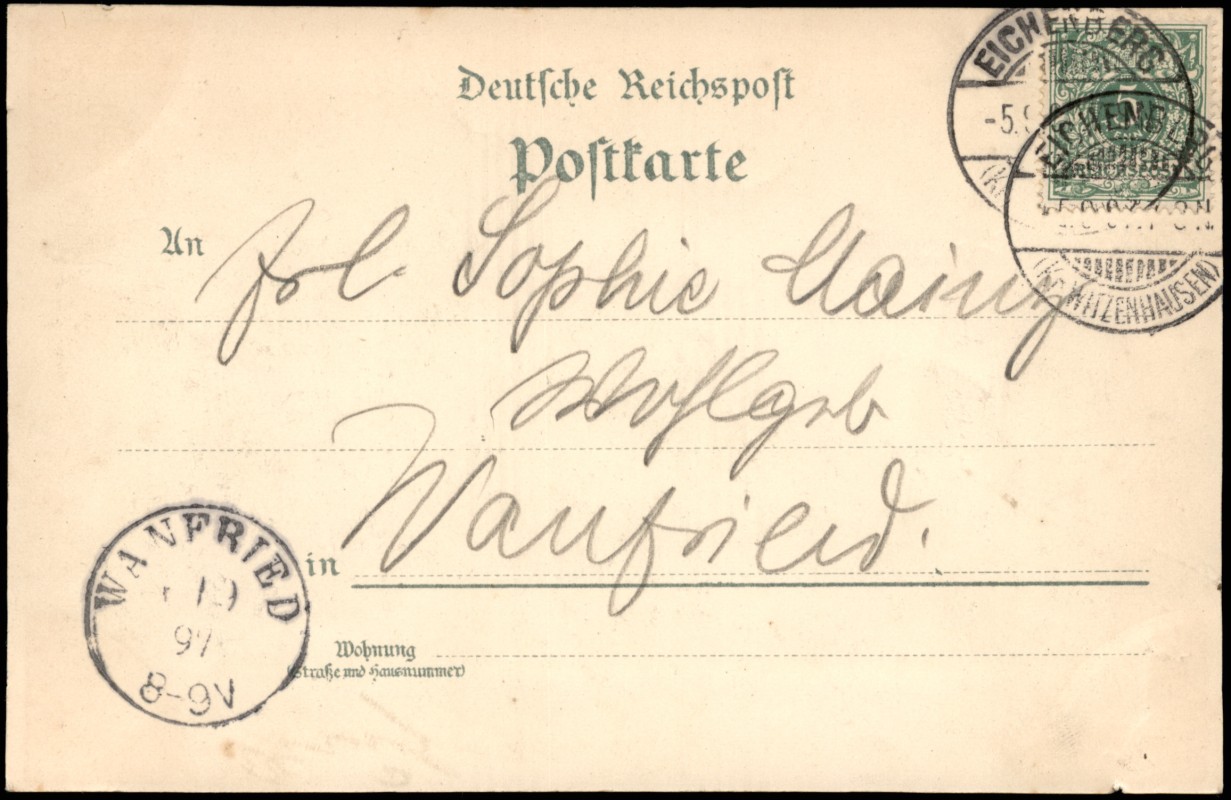 Deutsche Reichspost
Postkarte
An Frl Sophie Mainz
Wohlgeb
in Wanfried.
Wohnung
(Straße und Hausnummer)
EICHENBERG
-5.9
5
REICHSPOST
EICHENBERG
(Kr. WITZENHAUSEN)
WANFRIED
97
8-9V